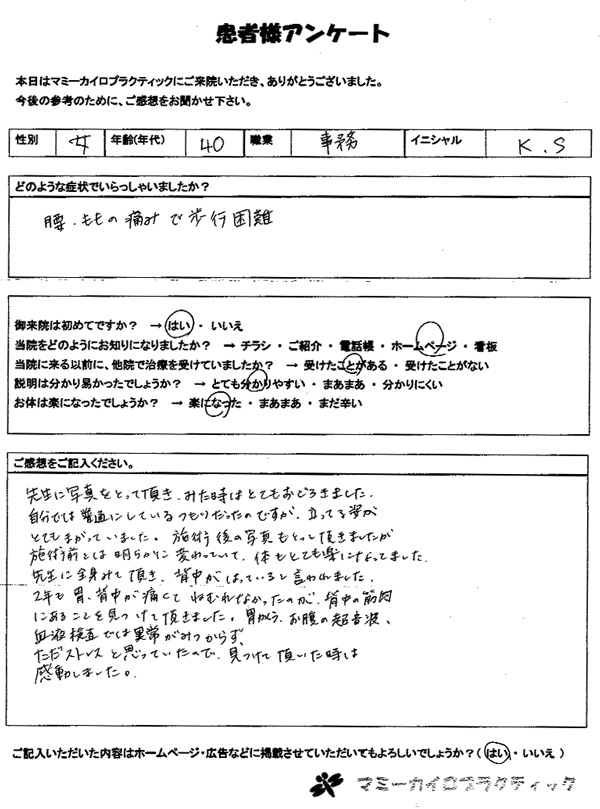 患者様アンケート
本日はマミーカイロプラクティックにご来院いただき、ありがとうございました。
今後の参考のために、ご感想をお聞かせ下さい。
性別 女 年齢(年代) 40 職業 事務 イニシャル K.S
どのような症状でいらっしゃいましたか?
腰、ももの痛みで歩行困難
御来院は初めてですか? → はい ・ いいえ
当院をどのようにお知りになりましたか? → チラシ ・ ご紹介 ・ 電話帳 ・ ホームページ ・ 看板
当院に来る以前に、他院で治療を受けていましたか? → 受けたことがある ・ 受けたことがない
説明は分かり易かったでしょうか? → とても分かりやすい ・ まあまあ ・ 分かりにくい
お体は楽になったでしょうか? → 楽になった ・ まあまあ ・ まだ辛い
ご感想をご記入ください。
先生に写真をとって頂き、みた時はとてもおどろきました。
自分では普通にしているつもりだったのですが、立ってる姿が
とてもまがっていました。施術後の写真もとって頂きましたが
施術前とは明らかに変わっていて、体もとても楽になってました。
先生に全身みて頂き、背中がはっていると言われました。
2年も胃、背中が痛くてねむれなかったのが、背中の筋肉
にあることを見つけて頂きました。胃がう、お腹の超音波、
血液検査では異常がみつからず、
ただストレスと思っていたので、見つけて頂いた時は
感動しました。
ご記入いただいた内容はホームページ・広告などに掲載させていただいてもよろしいでしょうか?( はい ・ いいえ )
マミーカイロプラクティック